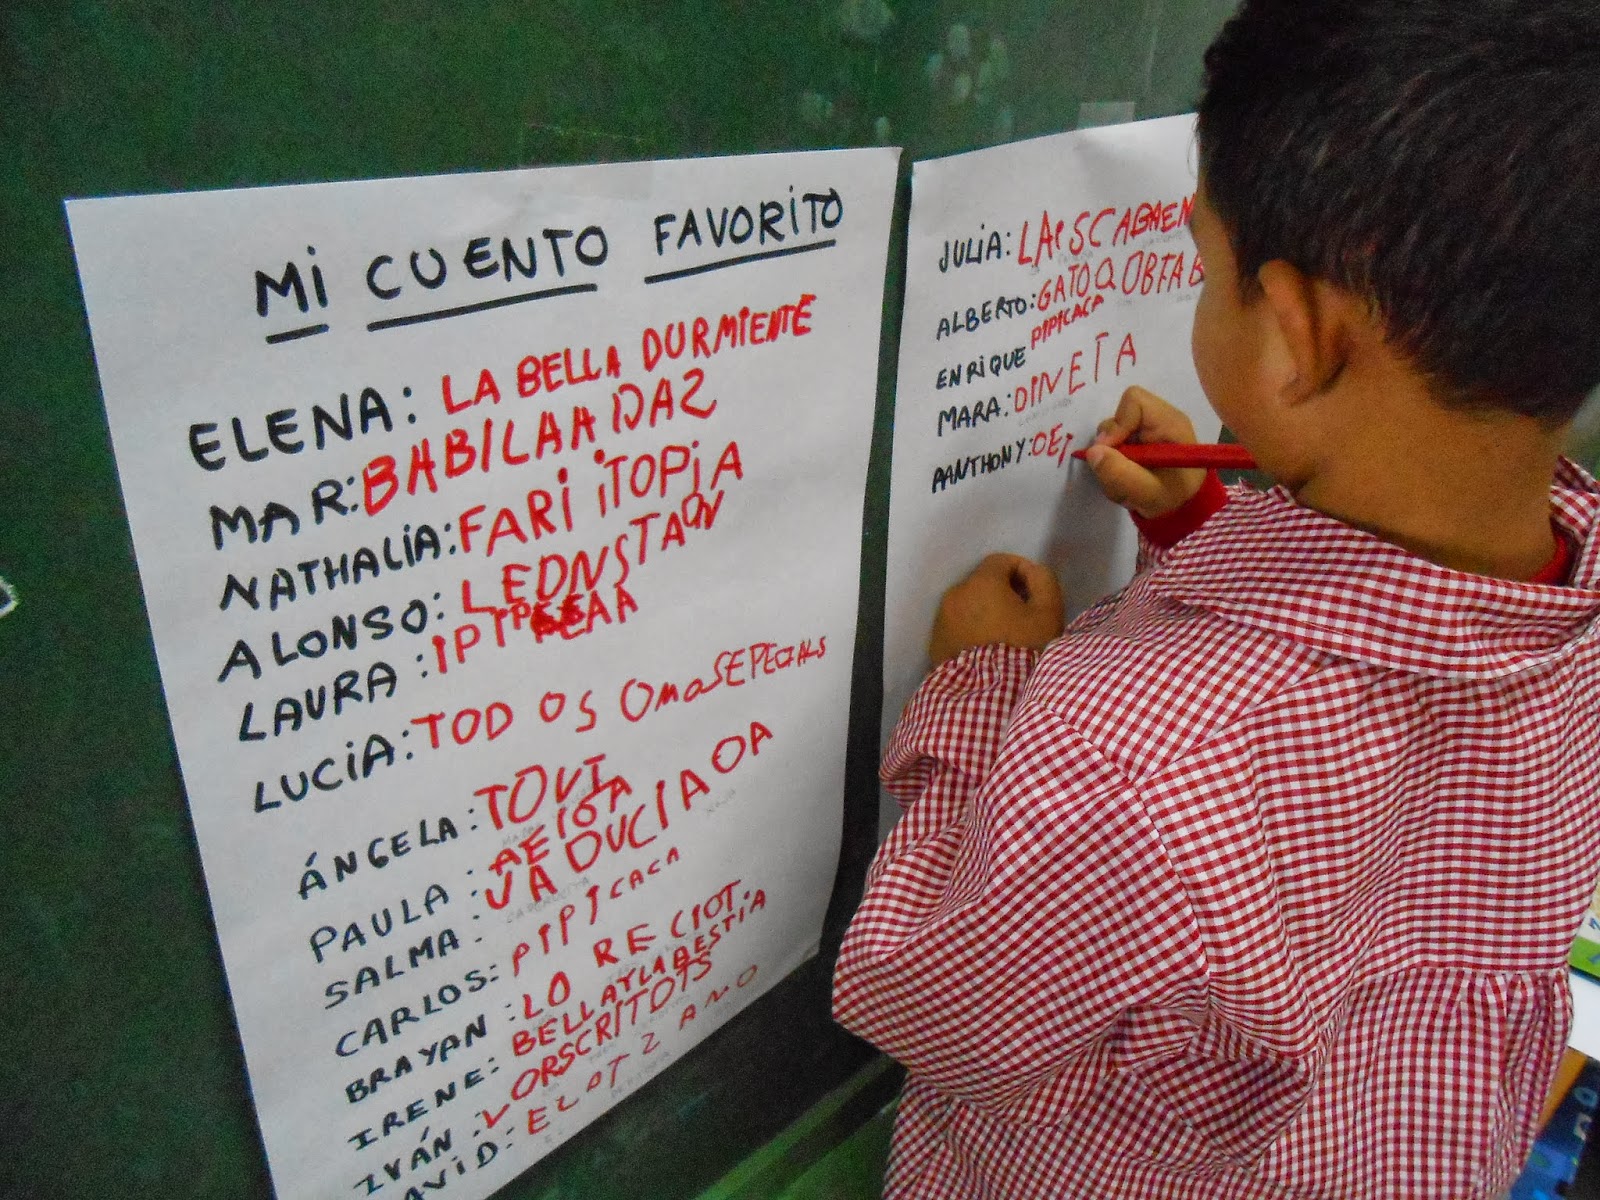 MI CUENTO FAVORITO
ELENA: LA BELLA DURMIENTE
MAR: BABILAA DAZ
NATHALIA: FARI ITOPIA
ALONSO: LEDNSTAON
LAURA: IPIPEEAA
LUCIA: TOD OS OMOSEPECIALS
ÁNGELA: TOVI
PAULA: AEIOA
SALMA: JADUCIAOA
CARLOS: PIPICACA
BRAYAN: LO RECIOT
IRENE: BELLAYLABESTIA
IVÁN: LORSCRITOITS
AVID: ELAT2ANO
JULIA: LAISCABAEN
ALBERTO: GATOQOBTAB
ENRIQUE PIPICACA
MARA: DINETA
AANTHONY: OET